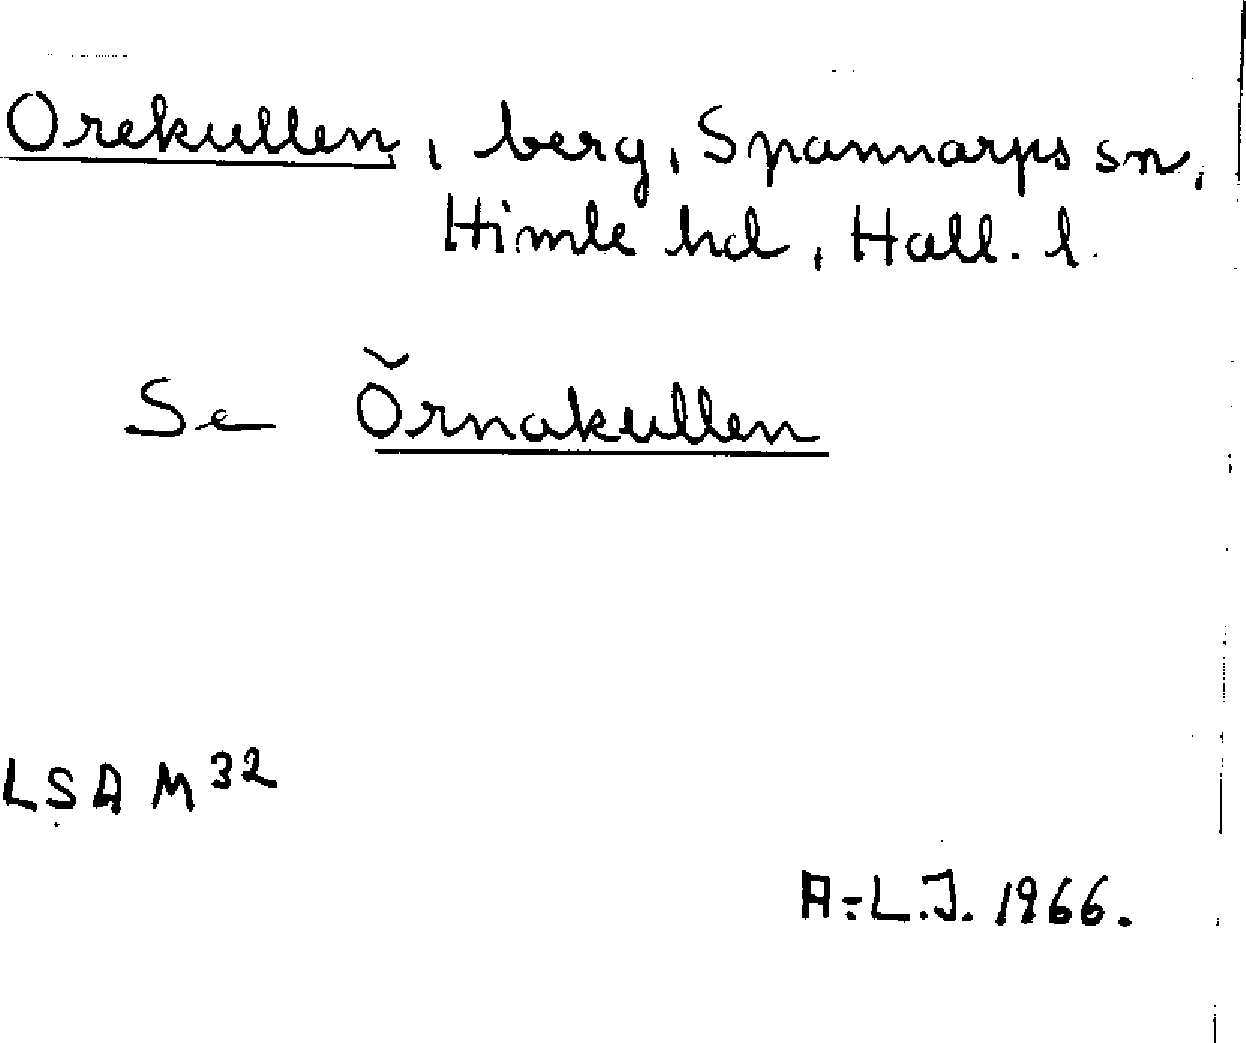 Orekullen, berg, Spannarps sn,
Himle hd, Hall. l.
Se Örnakullen
LSA M 32
A-L.J. 1966.